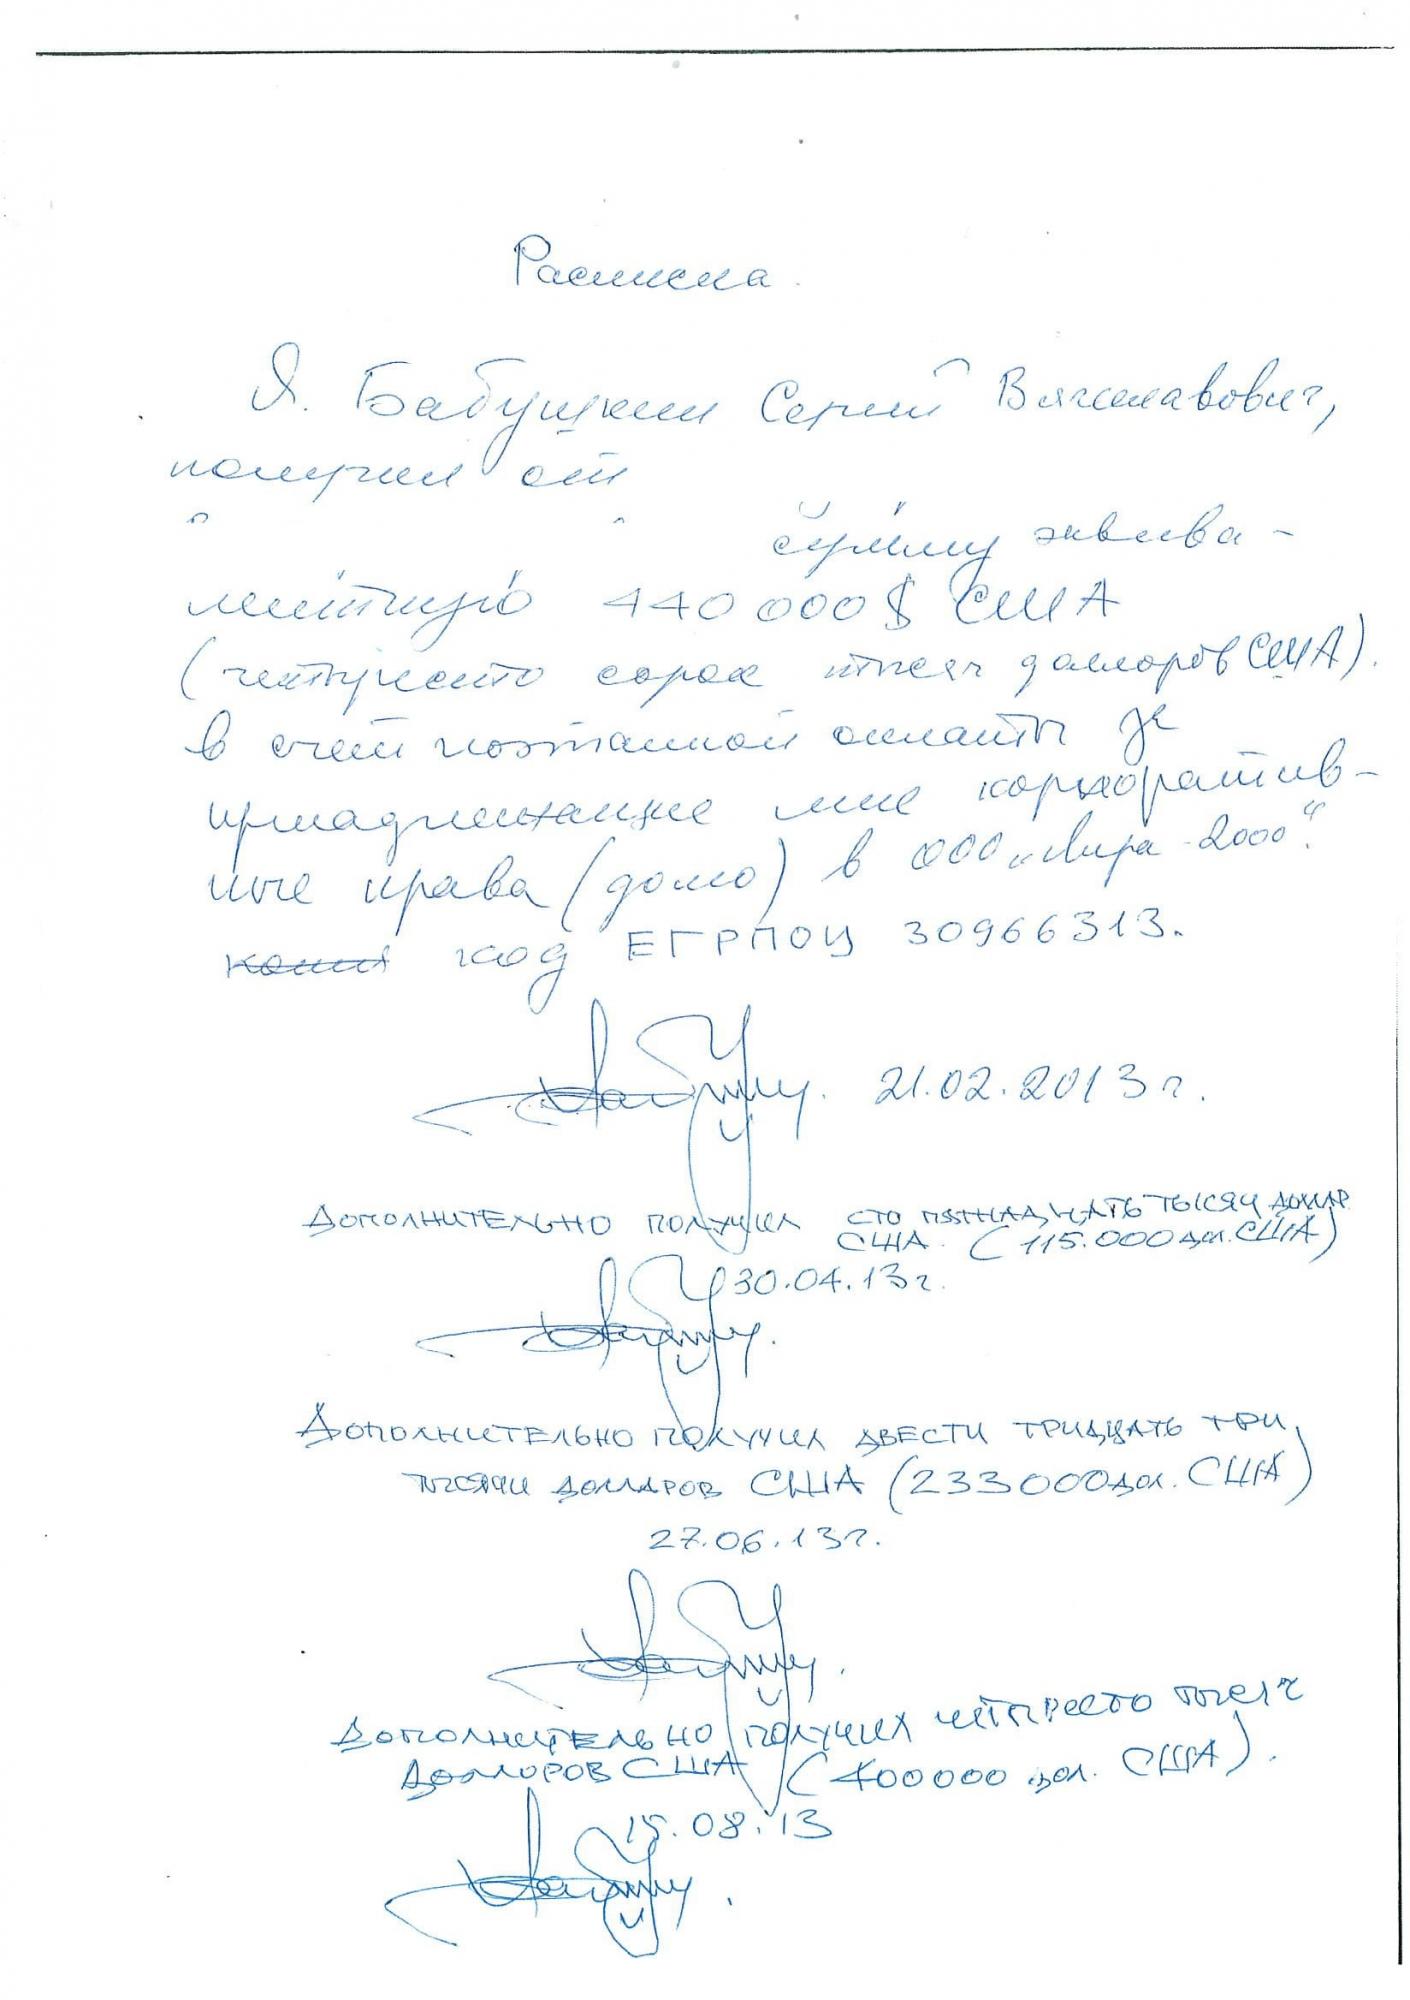 Расписка.
Я. Бабушкин Сергей Вячеславович,
получил от
сумму эквива-
лентную 440 000 $ США
(четыреста сорок тысяч долларов США).
в счет поэтапной оплаты за
принадлежащие мне корпоратив-
ные права (долю) в ООО „Лира-2000".
копия код ЕГРПОЦ 30966313.
21.02.2013 г.
ДОПОЛНИТЕЛЬНО ПОЛУЧИЛ СТО ПЯТНАДЦАТЬ ТЫСЯЧ ДОЛЛАР
США. (115.000 дол. США)
30.04.13г.
ДОПОЛНИТЕЛЬНО ПОЛУЧИЛ ДВЕСТИ ТРИДЦАТЬ ТРИ
ТЫСЯЧИ ДОЛЛАРОВ США (233000 дол. США)
27.06.13г.
ДОПОЛНИТЕЛЬНО ПОЛУЧИЛ ЧЕТЫРЕСТО ТЫСЯЧ
ДОЛЛОРОВ США (400000 дол. США).
15.08.13